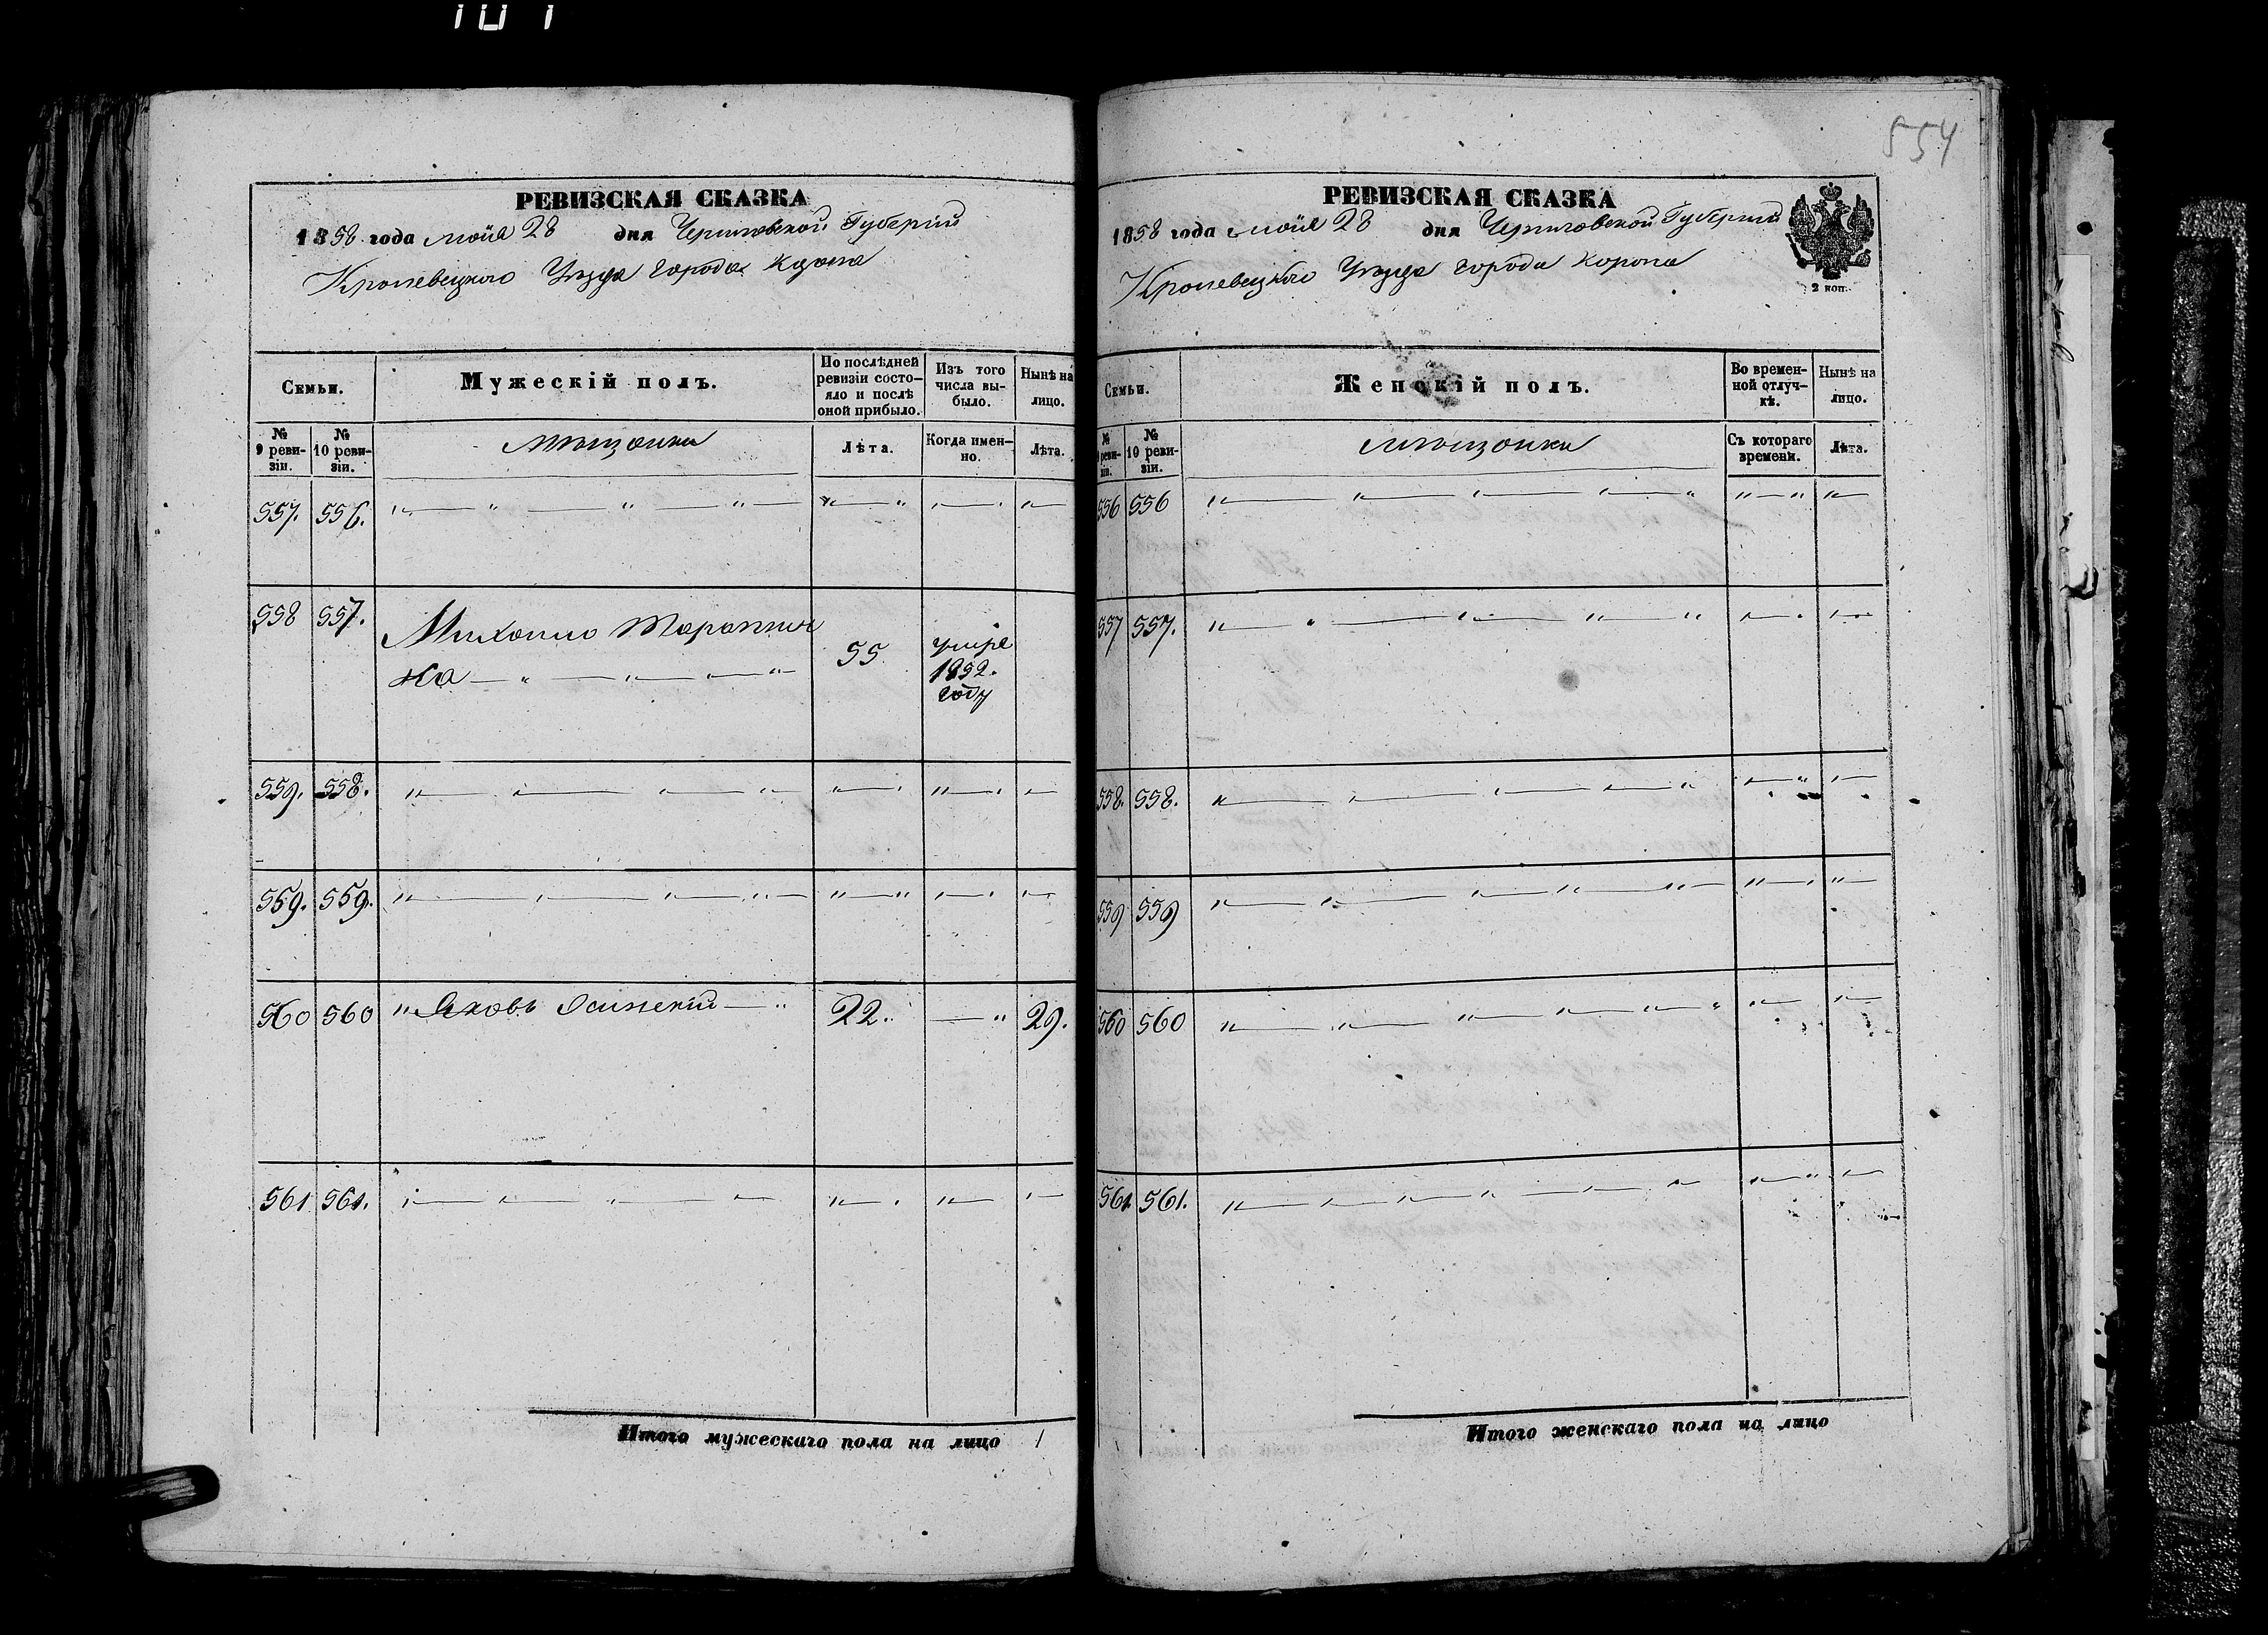 101
РЕВИЗСКАЯ СКАЗКА
1858 года мая 28 дня Черниговской Губернии
Кролевецкого Уезда города Коропа
Семьи.
Мужескій полъ.
По послѣдней ревизіи состояло и послѣ оной прибыло.
Изъ того числа выбыло.
Нынѣ на лицо.
№ 9 ревизіи.
№ 10 ревизіи.
Мѣщанки
Лѣта.
Когда именно.
Лѣта.
557. 556.
558 557.
Михайло Тараниш
ка
55
умре
1852.
году
559. 558.
559. 559.
560 560 Яковъ Осинскій 22. 29.
561 561.
Итого мужескаго пола на лицо 1
554
РЕВИЗСКАЯ СКАЗКА
1858 года мая 28 дня Черниговской Губернии
Кролевецкого Уезда города Коропа
2 коп.
Семьи.
Женскій полъ.
Во временной отлучкѣ.
Нынѣ на лицо.
№ 9 ревизіи.
№ 10 ревизіи.
Мѣщанки
Съ котораго времени.
Лѣта.
556 556
557 557.
558. 558.
559 559
560 560
561. 561.
Итого женскаго пола на лицо